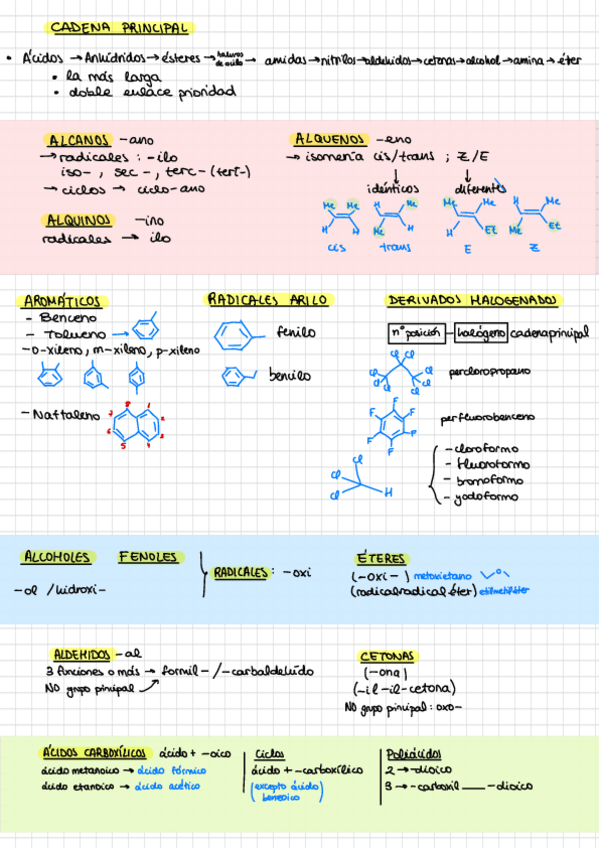 CADENA PRINCIPAL
• Ácidos → Anhídridos → ésteres → haluros de acilo → amidas → nitrilos → aldehidos → cetonas → alcohol → amina → éter
• la más larga
• doble enlace prioridad
ALCANOS -ano
→ radicales : -ilo
iso- , sec- , terc- (tert-)
→ ciclos → ciclo-ano
ALQUINOS -ino
radicales → ilo
ALQUENOS -eno
→ isomería cis/trans ; Z/E
idénticos diferentes
Me Me Me H Me Me
H H Me H H Et Me Et
cis trans E Z
AROMÁTICOS
- Benceno
- Tolueno →
- o-xileno, m-xileno, p-xileno
- Naftaleno
8 1
7 2
6 3
5 4
RADICALES ARILO
fenilo
bencilo
DERIVADOS HALOGENADOS
nº posición - halógeno cadena principal
Cl Cl
Cl Cl
Cl Cl
Cl Cl
percloropropano
F F
F F
F F
perfluorobenceno
Cl
Cl
Cl H
- cloroformo
- fluoroformo
- bromoformo
- yodoformo
ALCOHOLES FENOLES
-ol / hidroxi-
RADICALES : -oxi
ÉTERES
(-oxi-) metoxietano O
(radicalradical éter) etilmetiléter
ALDEHIDOS -al
3 funciones o más → formil- / -carbaldehído
NO grupo principal
CETONAS
(-ona)
(-il-il-cetona)
NO grupo principal : oxo-
ÁCIDOS CARBOXÍLICOS ácido + -oico
ácido metanoico → ácido fórmico
ácido etanoico → ácido acético
Ciclos
ácido + -carboxílico
(excepto ácido benzoico)
Poliácidos
2 → -dioico
3 → -carboxil ___ -dioico